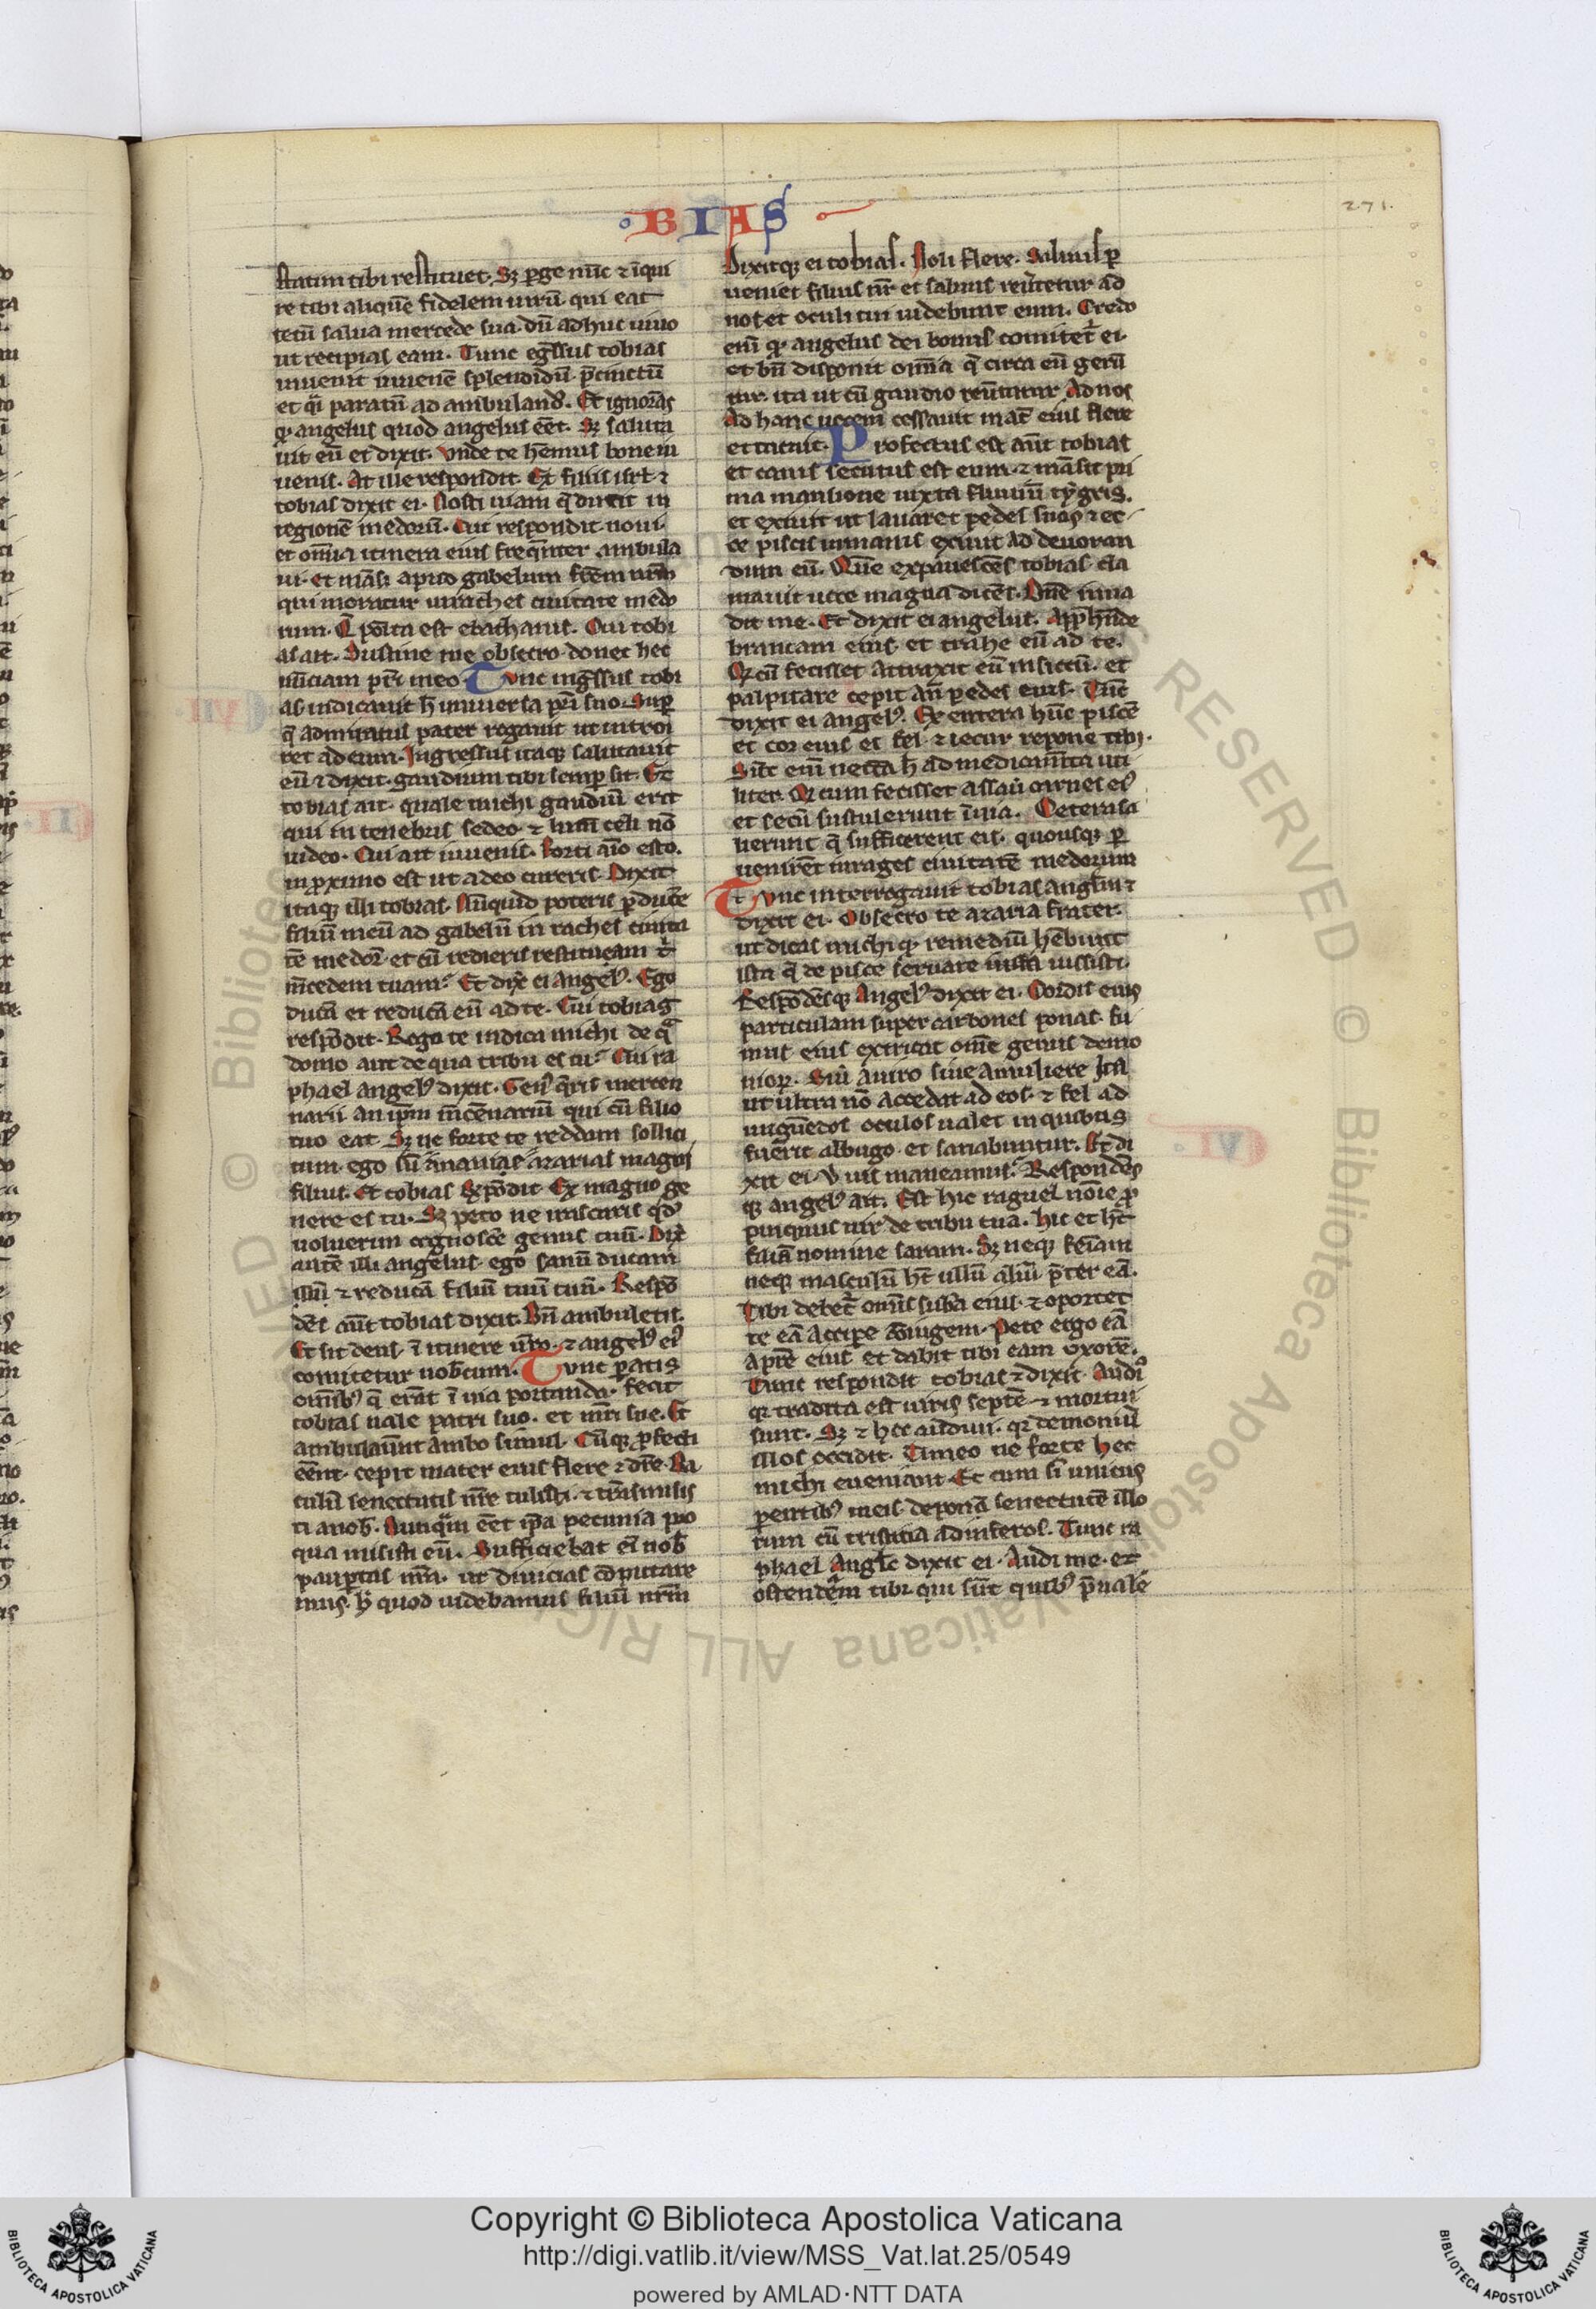 ·BIAS
271.
statim tibi restituet. Sʒ ꝑge nūc ⁊ īqui
re tibi aliquē fidelem uirū qui eat
tecū salua mercede sua dū adhuc uiuo
ut recipias eam. Tunc eg̃ssus tobias
inuenit iuuenē splendidū p̃cinctū
et q̄i paratū ad ambuland̄. Et ignorās
ꝙ angelus quod angelus eēt. Sʒ saluta
uit eū et dixit. vnde te hēmus bone iu
uenis. At ille respondit. Ex filiis isrl ⁊
tobias dixit ei. Nosti uiam q̄ ducit in
regionē medorū. Cui respondit noui.
et om̄ia itinera eius freq̄nter ambula
ui. et māsi apud gabelum frēm nrm̄
qui moratur in rachel ciuitate medo
rum. Q̄ posita est ebathanis. Cui tobi
as ait. Sustine me obsecro donec hec
nūciam pr̄i meo. Tunc ing̃ssus tobi
as indicauit h̄ uniuersa pr̄i suo. Suꝑ
q̄ admiratus pater rogauit ut introi
ret ad eum. Ingressus itaqʒ salutauit
eū ⁊ dixit. gaudium tibi semꝑ sit. Et
tobias ait. quale michi gaudiū erit
qui in tenebris sedeo ⁊ lumē celi nō
uideo. Cui ait iuuenis. Forti aīo esto.
in ꝓximo est ut a deo cureris. Dixit
itaqʒ illi tobias. Nūquid poteris ꝑducē
filiū meū ad gabelū in rachel ciuita
tē medoꝝ et cū redieris restituam t̄
m̄cedem tuam. Et dix̄ ei angelꝰ. Ego
ducā et reducā eū ad te. Cui tobias
respōdit. Rogo te indica michi de q̄
domo aut de qua tribu es tu. Cui ra
phael angelꝰ dixit. Genꝰ q̄ris mercen
narii an ip̄m m̄cēnariū qui cū filio
tuo eat. Sʒ ne forte te reddam sollici
tum. ego sū ananias azarias magni
filius. Et tobias respōdit. Ex magno ge
nere es tu. Sʒ peto ne irascaris qd̄
uoluerim cognoscē genus tuū. Dix̄
autē illi angelus. ego sanū ducam
illū ⁊ reducā filiū tuū tibi. Respō
dēs aūt tobias dixit. Bn̄ ambuletis.
Et sit deus ī itinere ūro. ⁊ angelꝰ eiꝰ
comitetur uobcum. Tunc ꝑatis
omībꝰ q̄ erāt ī uia portanda. fecit
tobias uale patri suo. et m̄ri sue. Et
ambulauūnt ambo simul. Cūqʒ ꝓfecti
eēnt. cepit mater eius flere ⁊ dr̄e. Ba
culū senectutis nr̄e tulisti. ⁊ trāsmisis
ti a nob̄. Nunq̄m eēt ip̄a pecunia pro
qua misisti eū. Sufficiebat eī nob̄
pauꝑtas nr̄a. ut diuicias ꝯputare
mus h̄ quod uidebamus filiū nrm̄
Dixitqʒ ei tobias. Noli flere. Saluus ꝑ
ueniet filius nr̄ et saluus reu̓tetur ad
nos et oculi tui uidebunt eum. Credo
enī ꝙ angelus dei bonus comitet̄ ei.
et bn̄ disponit omīa q̄ circa eū gerū
tur. ita ut cū gaudio reu̓tatur ad nos
Ad hanc uocem cessauit mat̄ eius flere
et tacuit. Profectus est aūt tobias
et canis secutus est eum. ⁊ māsit pri
ma mansione iuxta fluuiū tygris.
et exiuit ut lauaret pedes suos ⁊ ec
ce piscis inmanis exiuit ad deuoran
dum eū. Quē expauescēs tobias cla
mauit uoce magna dicēs. Dn̄e inua
dit me. Et dixit ei angelus. Appr̄hnde
brancam eius. et trahe eū ad te.
Qʒ cū fecisset attraxit eū in siccū. et
palpitare cepit an̄ pedes eius. Tūc
dixit ei angelꝰ. Exentera hūc piscē
et cor eius et fel ⁊ iecur repone tibi.
Sūt enī necc̄a h̄ ad medicam̄ta uti
liter. Qʒ cum fecisset assauit carnes eiꝰ
et secū sustulerunt ī uia. Cetera sa
lierunt q̄ sufficerent eis. quousqʒ ꝑ
uenirēt in rages ciuitatē medorum
Tunc interrogauit tobias anglm̄ ⁊
dixit ei. Obsecro te azaria frater.
ut dicas michi qʒ remediū hēbunt
ista q̄ de pisce seruare iussisti.
Respōdēsqʒ Angelꝰ dixit ei. Cordis eius
particulam super carbones ponas. fu
mus eius extricat omē genus demo
nioꝝ. Siue a uiro siue a muliere Ita
ut ultra nō accedat ad eos. ⁊ fel ad
unguēdos oculos ualet in quibus
fuerit albugo. et sanabuntur. Et di
xit ei. Vbi uis maneamus. Respondēs
qʒ angelꝰ ait. Est hic raguel nōie ꝓ
pinquus uir de tribu tua. hic et ht̄
filiā nomine saram. Sʒ neqʒ feīam
neqʒ masculū ht̄ ullū aliū p̄ter eā.
Tibi debet̄ omīs suba eius ⁊ oportet
te eā accipe ꝯiugem. Pete ergo eā
a pr̄e eius et dabit tibi eam uxorē.
Tunc respondit tobias ⁊ dixit. Audiꝰ
qʒ tradita est uiris septē. ⁊ mortui
sunt. Sʒ ⁊ hec audiui. qʒ demoniū
illos occidit. Timeo ne forte hec
michi eueniant. Et cum sī unicus
parentibꝰ meis deponā senectutē illo
rum cū tristitia ad inferos. Tunc ra
phael Angls dixit ei. Audi me. et
ostendām tibi qui sūt quibꝰ p̄uale
Copyright © Biblioteca Apostolica Vaticana
http://digi.vatlib.it/view/MSS_Vat.lat.25/0549
powered by AMLAD·NTT DATA